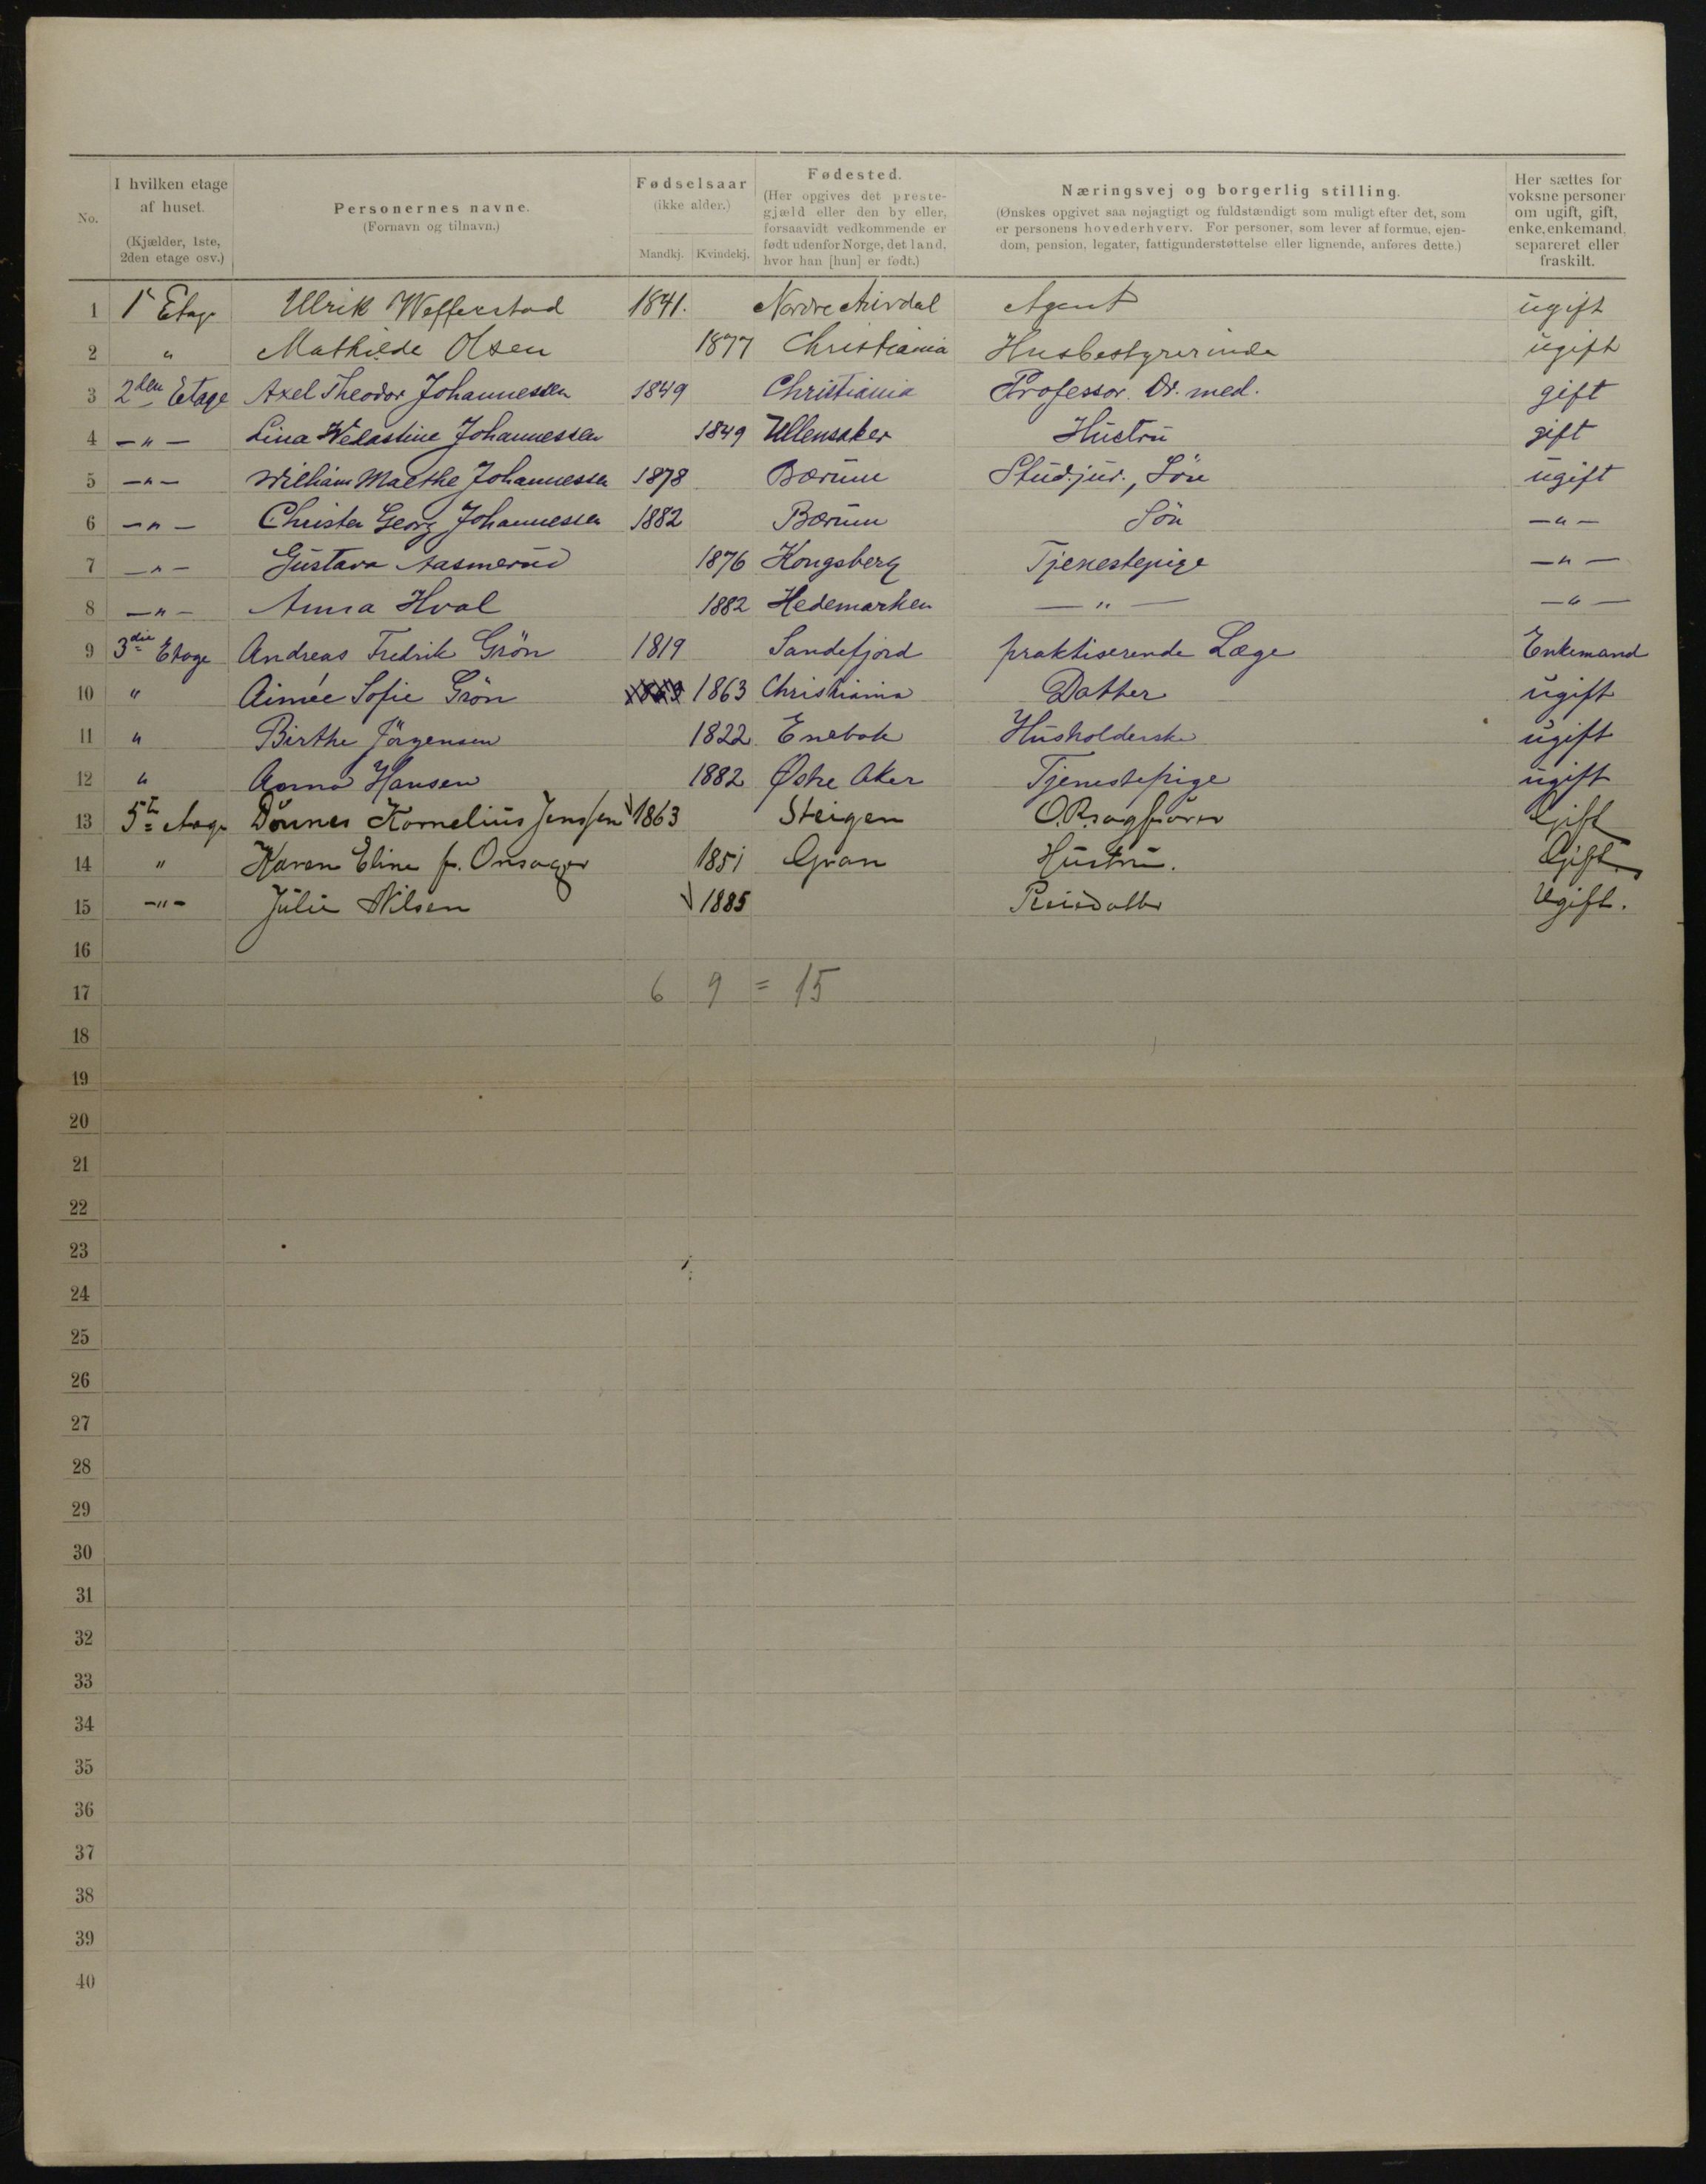 No.
I hvilken etage af huset.
(Kjælder, 1ste, 2den etage osv.)
Personernes navne.
(Fornavn og tilnavn.)
Fødselsaar
(ikke alder.)
Mandkj. Kvindekj.
Fødested.
(Her opgives det prestegjæld eller den by eller, forsaavidt vedkommende er født udenfor Norge, det land, hvor han [hun] er født.)
Næringsvej og borgerlig stilling.
(Ønskes opgivet saa nøjagtigt og fuldstændigt som muligt efter det, som er personens hovederhverv. For personer, som lever af formue, ejendom, pension, legater, fattigunderstøttelse eller lignende, anføres dette.)
Her sættes for voksne personer om ugift, gift, enke, enkemand, separeret eller fraskilt.
1 Etage Ulrik 1841. Nordre Agent ugift
2 " Mathilde Olsen 1877 Christiania Husbestyrerinde ugift
3 2den Etage Axel Theodor Johannessen 1849 Christiania Professor. Dr. med. gift
4 -"- Lina Johannessen 1849 Ullensaker Hustru gift
5 -"- Johannessen 1878 Bærum Stud. jur., Sön ugift
6 -"- Georg Johannessen 1882 Bærum Sön -"-
7 -"- Gustava Aasmerud 1876 Kongsberg Tjenestepige -"-
8 -"- Anna Hval 1882 Hedemarken -"- -"-
9 3die Etage Andreas Fredrik Grön 1819 Sandefjord praktiserende Læge Enkemand
10 " Aimée Sofie Grön 1863 Christiania Datter ugift
11 " Birthe Jörgensen 1822 Enebak Husholderske ugift
12 " Anna Hansen 1882 Østre Aker Tjenestepige ugift
13 5te Kornelius Jenssen 1863 Steigen O.R.sagförer Gift
14 " Karen Eline f. Onsager 1851 Gran Hustru. Gift
15 -"- Julie Nilsen 1885 Pleiedatter Ugift.
16
17 6 9 = 15
18
19
20
21
22
23
24
25
26
27
28
29
30
31
32
33
34
35
36
37
38
39
40